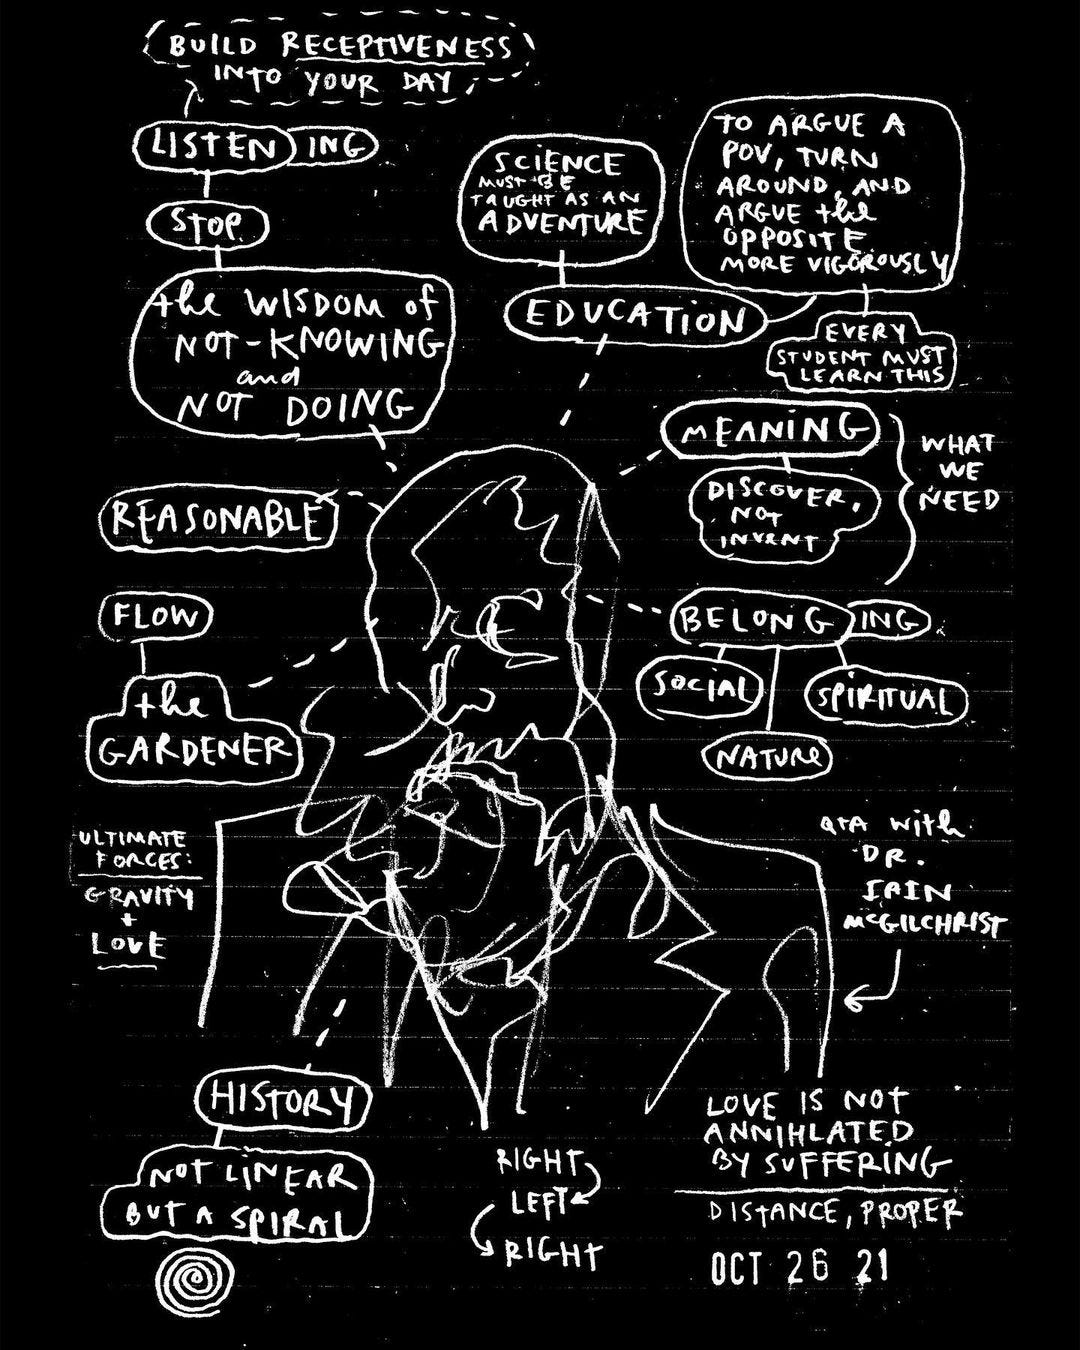 BUILD RECEPTIVENESS
INTO YOUR DAY
LISTEN ING
STOP
the WISDOM of
NOT-KNOWING
and
NOT DOING
REASONABLE
FLOW
the
GARDENER
ULTIMATE
FORCES:
GRAVITY
+
LOVE
HISTORY
NOT LINEAR
BUT A SPIRAL
SCIENCE
MUST BE
TAUGHT AS AN
ADVENTURE
EDUCATION
TO ARGUE A
POV, TURN
AROUND, AND
ARGUE the
OPPOSITE
MORE VIGOROUSLY
EVERY
STUDENT MUST
LEARN THIS
MEANING
DISCOVER,
NOT
INVENT
WHAT
WE
NEED
BELONG ING
SOCIAL
SPIRITUAL
NATURE
Q+A with
DR.
IAIN
McGILCHRIST
RIGHT
LEFT
RIGHT
LOVE IS NOT
ANNIHLATED
BY SUFFERING
DISTANCE, PROPER
OCT 26 21